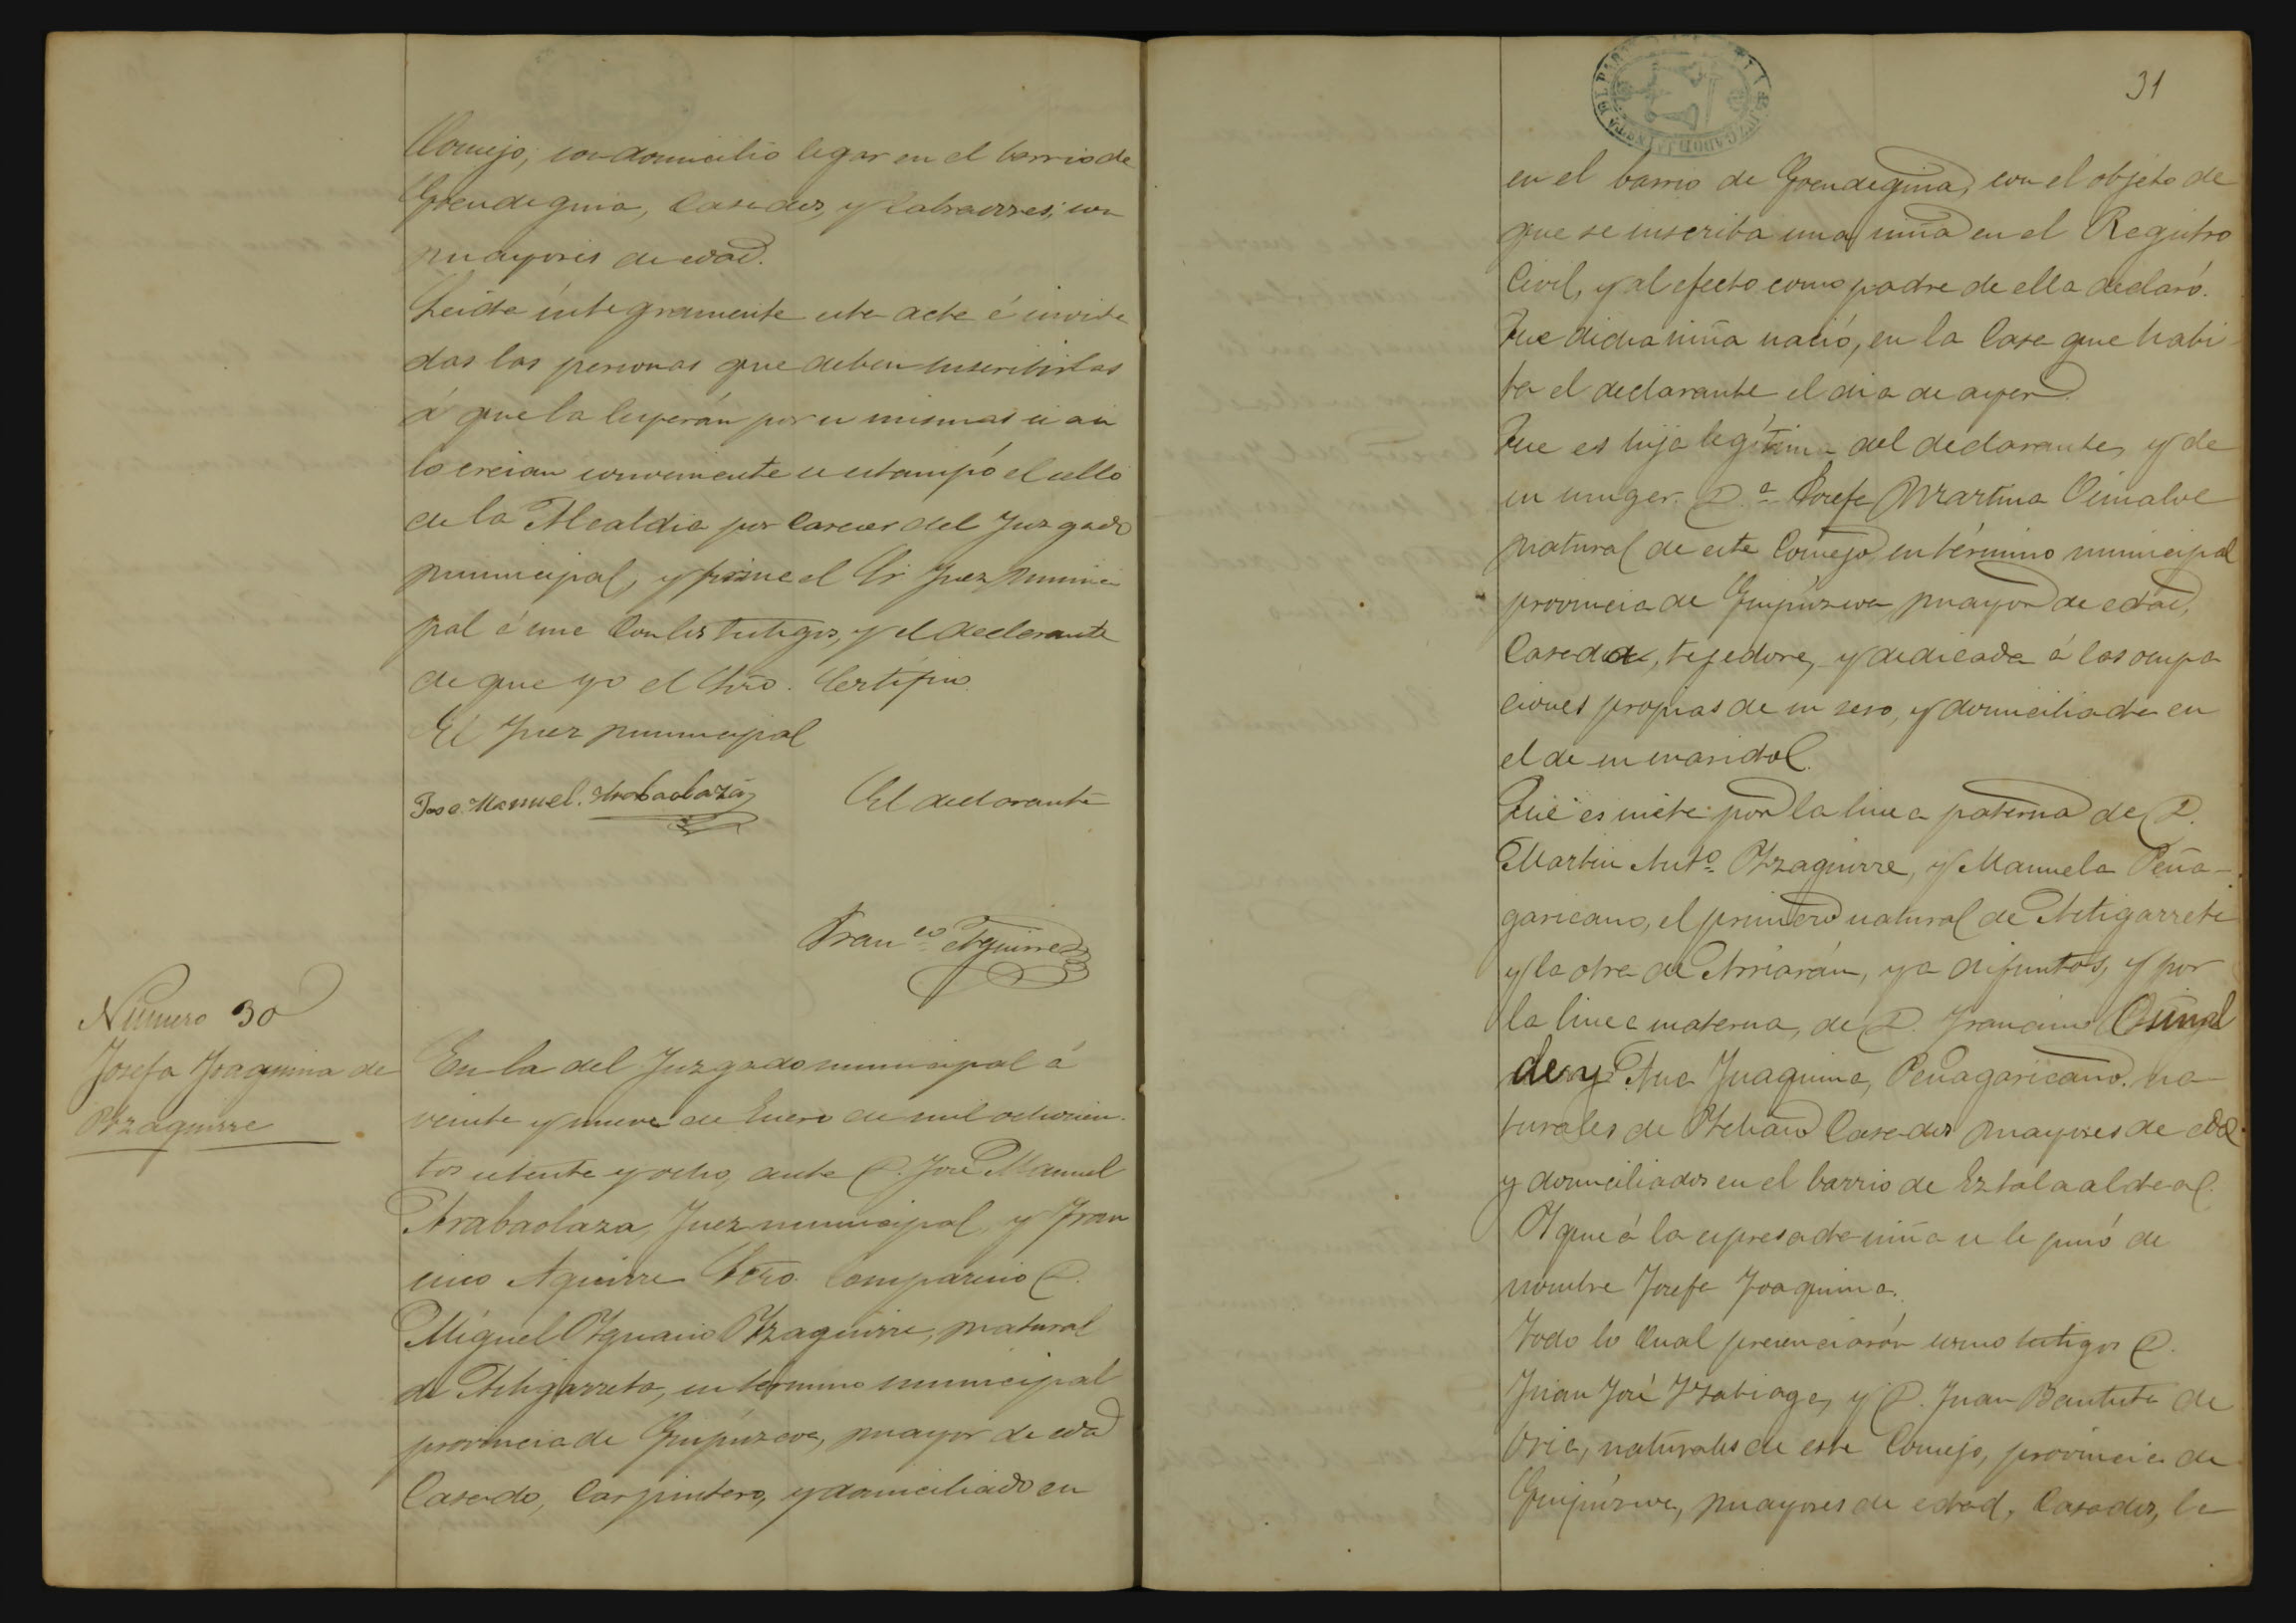 Concejo, con domicilio legar en el barrio de
Goendeguia, Casados, y labradores, son
mayores de edad.
Leida íntegramente esta acta é invita
das las personas que deben suscribirlas
á que la leyerán por si mismas si asi
lo creian conveniente se estampó el sello
de la Alcaldia por Carecer del Juzgado
municipal, y firme el Sr Juez munici
pal é une Con los testigos, y el declarante
de que yo el Srio. Certifico.
El Juez municipal
Jose Manuel. Arabaolaza
El declarante
Fran.co Aguirre
Número 30
Josefa Joaquina de
Yzaguirre
En la del Juzgado municipal á
veinte y nueve de Enero de mil ochocien
tos setenta y ocho, ante D. José Manuel
Arabaolaza, Juez municipal, y Fran
cisco Aguirre Srio. Comparecio D.
Miguel Ygnacio Yzaguirre, natural
de Astigarreta, su termino municipal
provincia de Guipúzcoa, mayor de edad
Casado, Carpintero, y domiciliado en
31
en el barrio de Goendeguia, con el objeto de
que se inscriba una niña en el Registro
Civil, y al efecto como padre de ella declaró.
Que dicha niña nació, en la Casa que habi
ta el declarante el dia de ayer.
Que es hija legítima del declarante, y de
su muger. D.a Josefa Martina Osinalde
natural de este Concejo, su término municipal
provincia de Guipúzcoa mayor de edad,
Casada, tejedora, y dedicada á las ocupa
ciones propias de su sexo, y domiciliada en
el de su marido.
Que es nieta por la linea paterna de D.
Martin Ant.o Yzaguirre, y Manuela Peña-
garicano, el primero natural de Astigarreta
y la otra de Arriarán, ya difuntos, y por
la linea materna, de D. Francisco Osinal
de y Ana Juaquina, Peñagaricano. na
turales de Ychaso Casados mayores de edad
y domiciliados en el barrio de Eztalaaldea.
Y que á la espresada niña se le pusó de
nombre Josefa Joaquina.
Todo lo Cual presenciarón como testigos D.
Juan José Yzabiaga, y D. Juan Bautista de
Oria, naturales de este Concejo, provincia de
Guipúzcoa, mayores de edad, Casados, la